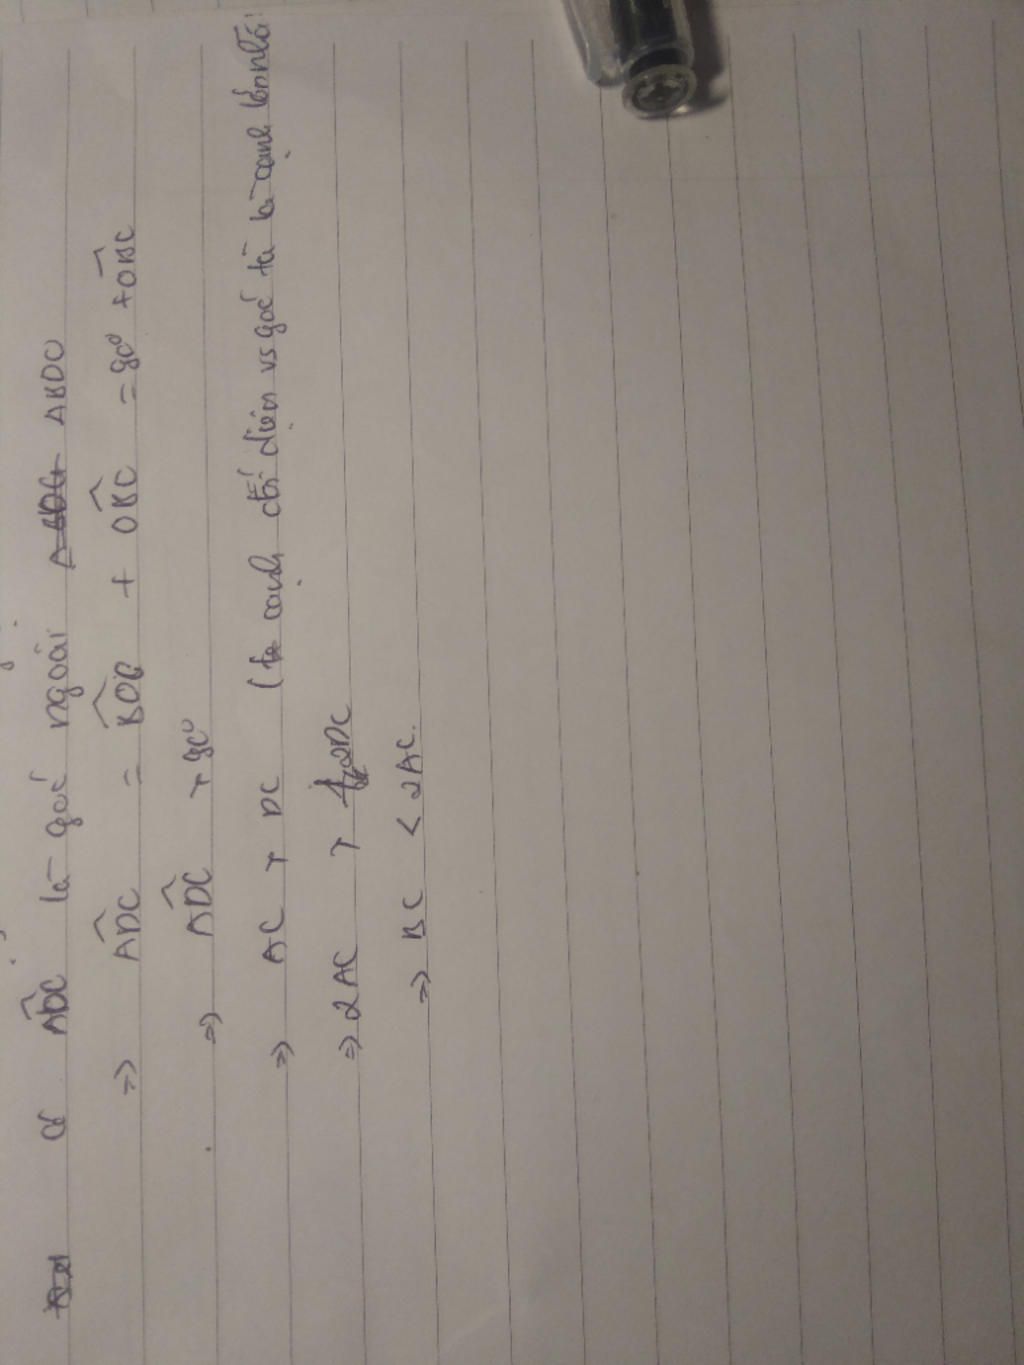 Có ADC là góc ngoài ΔBDO
=> ADC = BOD + OBC = 90° + OBC
=> ADC > 90°
=> AC > DC ( cạnh đối diện vs góc tù là cạnh lớn nhất
=> 2AC > 2DC
=> BC < 2AC.